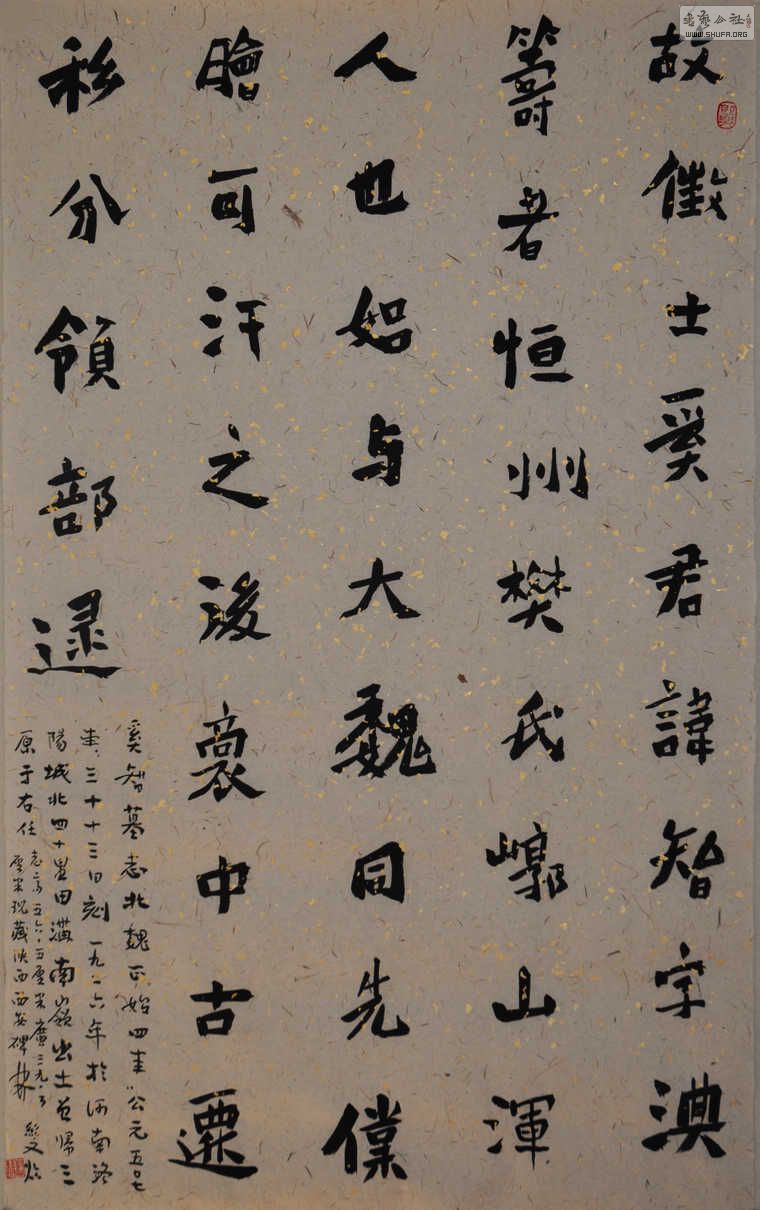 故徵士奚君諱智字淟
籌者恒州樊氏崞山渾
人也始与大魏同先僕
膾可汗之後裔中古遷
移分領部逮
奚智墓志北魏正始四年公元五〇七
年三十十三日刻一九二六年於河南洛
陽城北四十里田溝南山嶺出土曾歸三
原于右任
志高五六·五厘米廣三九·五
厘米现藏陕西西安碑林
書藝公社
WWW.SHUFA.ORG